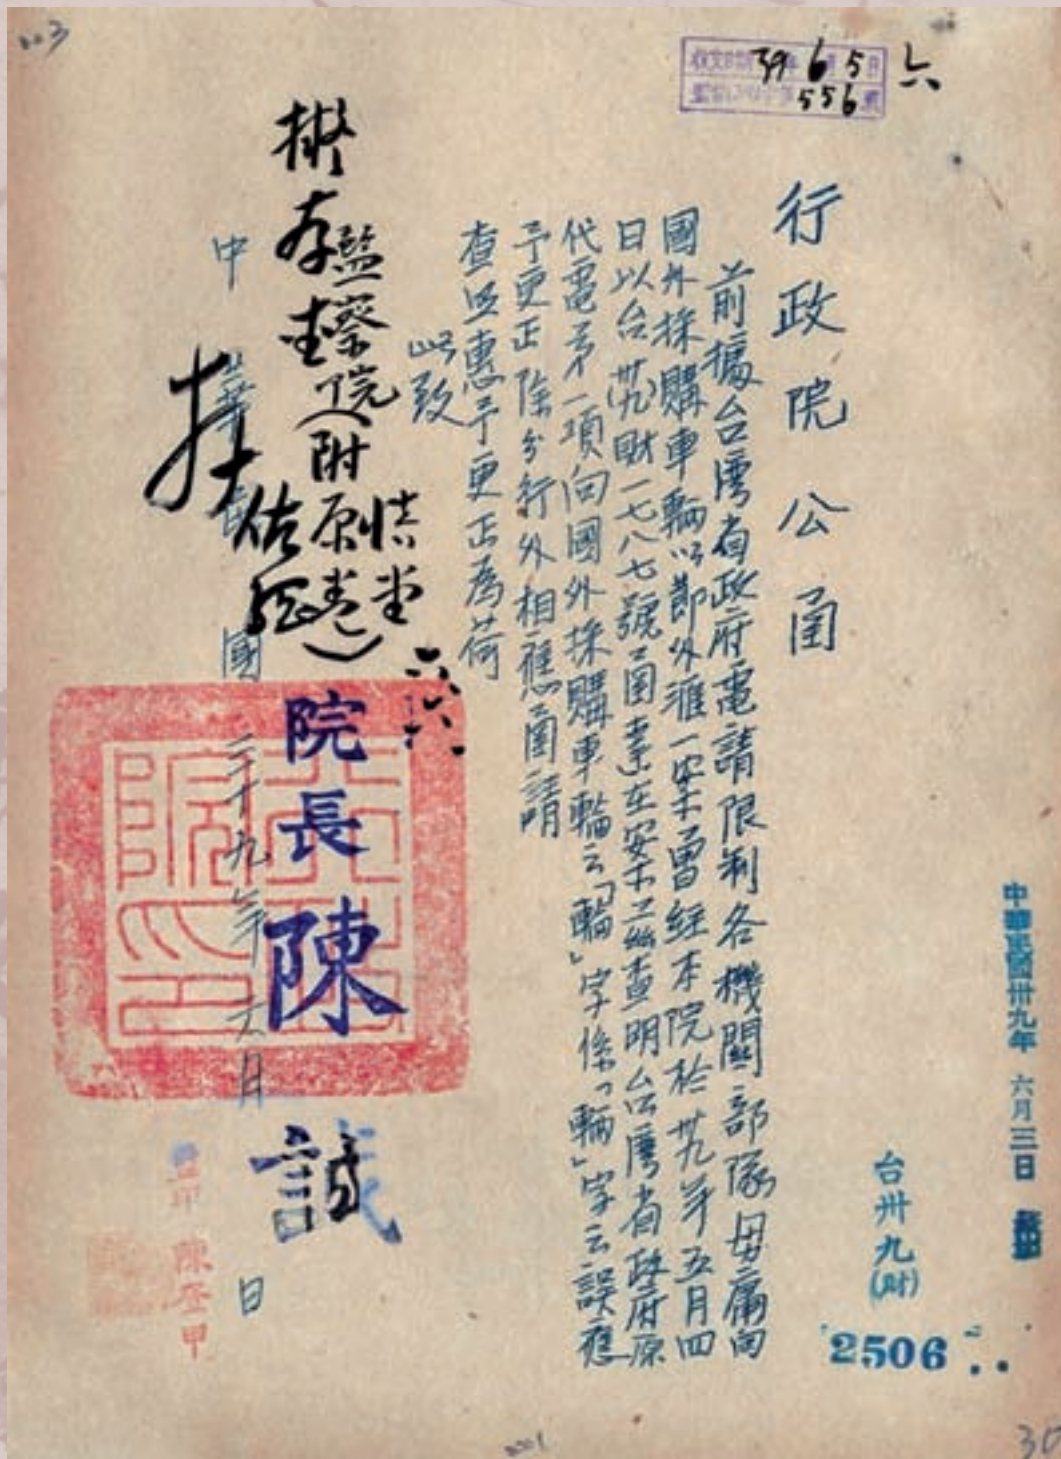 003
39年6月5日
556號
六
中華民國卅九年 六月三日
台卅九(財)
2506
行政院公函
前據台灣省政府電請限制各機關部隊毋庸向
國外採購車輛以節外滙一案曾經本院於卅九年五月四
日以台卅(九)財一七八七號函業在案茲查明台灣省政府原
代電第一項向國外採購車輪云「輪」字係「輛」字之誤應
予更正除分行外相應函請
查照惠予更正爲荷
此致
監察院(附原卷)
擬存查
佐
六六
院長陳誠
中華民國三十九年六月 日
監印 陳登甲
30